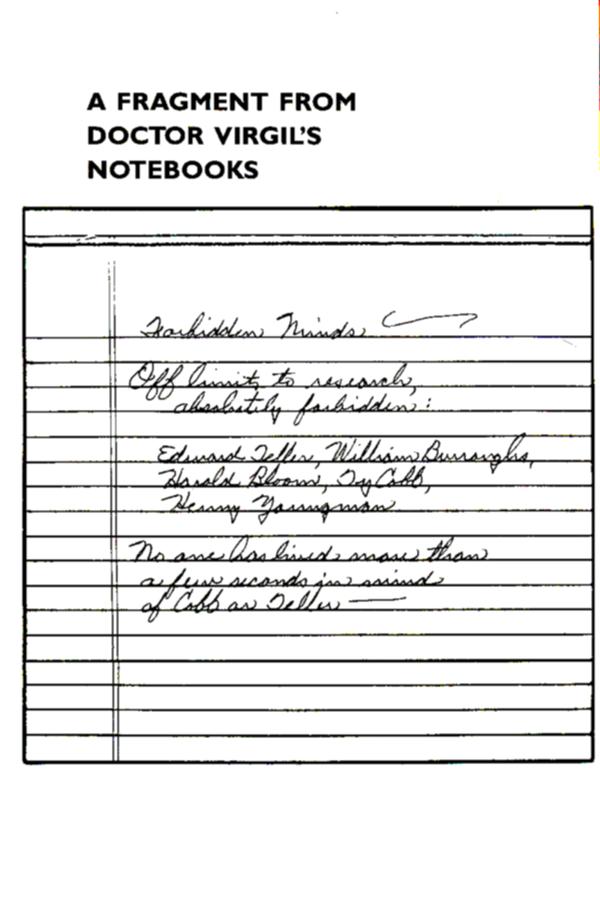 A FRAGMENT FROM
DOCTOR VIRGIL'S
NOTEBOOKS
Forbidden Minds
Off limits to research,
absolutely forbidden:
Edward Teller, William Burroughs,
Harold Bloom, Ty Cobb,
Henny Youngman
No one has lived more than
a few seconds in mind
of Cobb or Teller —